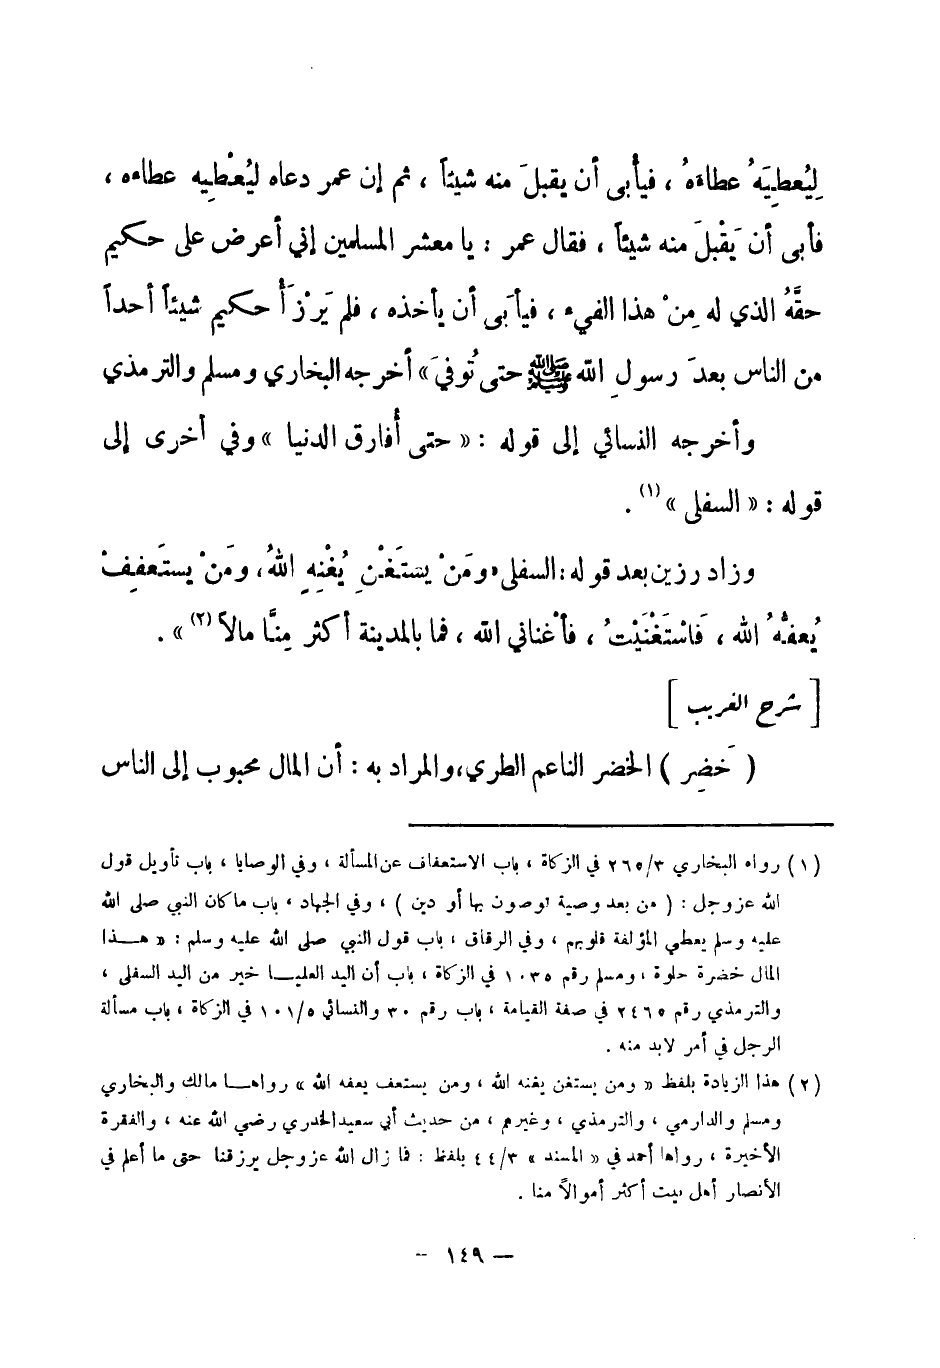 لِيُعطِيَهُ عطاءَهُ ، فيأْبى أن يقبلَ منه شيئاً ، ثم إن عمر دعاه ليُعْطِيه عطاءه ،
فأبى أن يَقْبلَ منه شيئاً ، فقال عمر : يا معشر المسلمين إني أعرض على حكيم
حقَّهُ الذي له مِنْ هذا الفيء ، فيأبَى أن يأخذه ، فلم يَرْزَأْ حكيم شيئاً أحداً
من الناس بعدَ رسولِ الله ﷺ حتى تُوفيَ » أخرجه البخاري ومسلم والترمذي
وأخرجه النسائي إلى قوله : « حتى أُفارق الدنيا » وفي أخرى إلى
قوله : « السفلى » (١) .
وزاد رزين بعد قوله : السفلى «ومَنْ يستَغْنِ يُغْنِهِ اللهُ ، ومَنْ يستَعفِفْ
يُعفُّهُ الله ، فَاسْتَغْنَيْتُ ، فأغْناني الله ، فما بالمدينة أكثر مِنَّا مالاً (٢) » .
[ شرح الغريب ]
( خَضِر ) الخضر الناعم الطري، والمراد به : أن المال محبوب إلى الناس
(١) رواه البخاري ٢٦٥/٣ في الزكاة ، باب الاستعفاف عن المسألة ، وفي الوصايا ، باب تأويل قول
الله عز وجل : ( من بعد وصية توصون بها أو دين ) ، وفي الجهاد ، باب ما كان النبي صلى الله
عليه وسلم يعطي المؤلفة قلوبهم ، وفي الرقاق ، باب قول النبي صلى الله عليه وسلم : « هـذا
المال خضرة حلوة ، ومسلم رقم ١٠٣٥ في الزكاة ، باب أن اليد العليـا خير من اليد السفلى ،
والترمذي رقم ٢٤٦٥ في صفة القيامة ، باب رقم ٣٠ والنسائي ١٠١/٥ في الزكاة ، باب مسألة
الرجل في أمر لابد منه .
(٢) هذا الزيادة بلفظ « ومن يستغن يغنه الله ، ومن يستعف يعفه الله » رواهـا مالك والبخاري
ومسلم والدارمي ، والترمذي ، وغيرهم ، من حديث أبي سعيد الخدري رضي الله عنه ، والفقرة
الأخيرة ، رواها أحمد في « المسند » ٤٤/٣ بلفظ : فما زال الله عز وجل يرزقنا حتى ما أعلم في
الأنصار أهل بيت أكثر أموالاً منا .
— ١٤٩ -